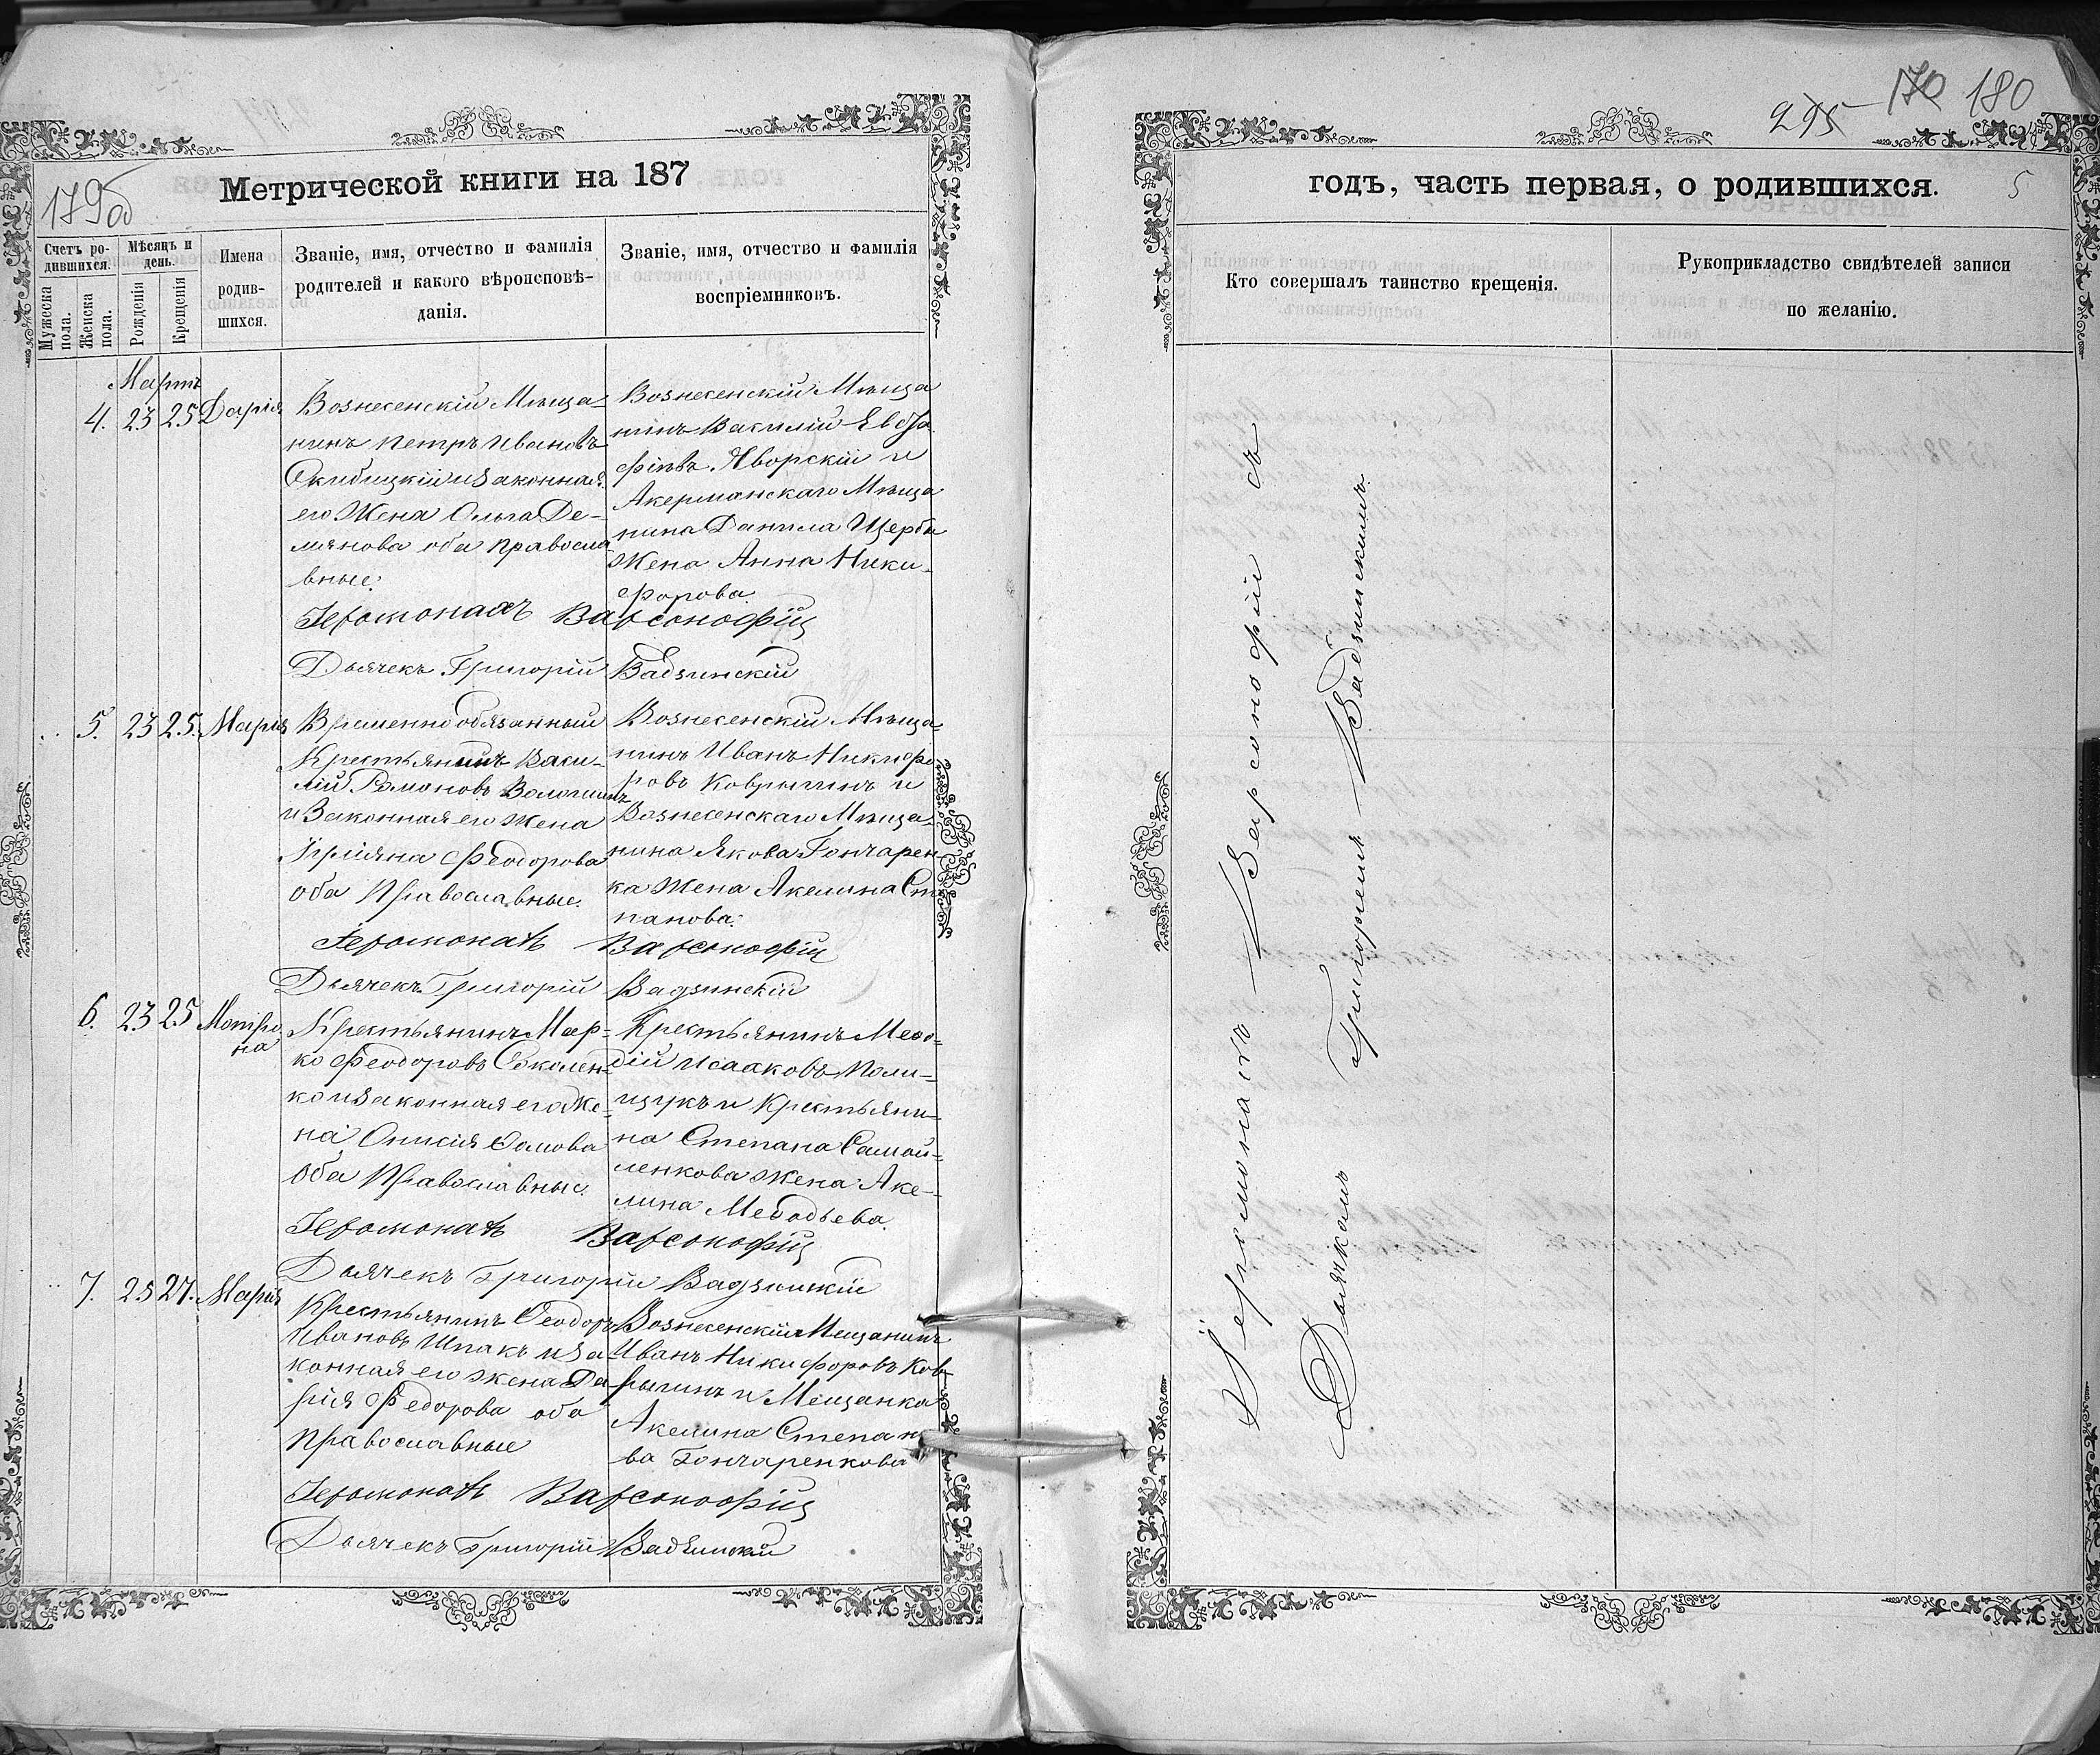 179об
Метрической книги на 187
Счетъ ро-
дившихся.
Мѣсяцъ и
день.
Мужеска
пола.
Женска
пола.
Рожденія
Крещенія
Имена
родив-
шихся.
Званіе, имя, отчество и фамилія
родителей и какого вѣроисповѣ-
данія.
Званіе, имя, отчество и фамилія
воспріемниковъ.
Мартъ
4. 23 25 Дарія
Вознесенскій Мѣща-
нинъ Петръ Ивановъ
Скибицкій и Законная
его Жена Ольга Де-
мянова оба правосла-
вные.
Вознесенскій Мѣща
нинъ Василій
Яворскій и
Акерманскаго Мѣща
нина Данила Щерби
Жена Анна Ники-
форова
Іеромонахъ Варсонофій
Дьячекъ Григорій Вадзинскій
5. 23 25. Марія
Временно обязанный
Крестьянинъ Васи-
лій Романовъ
и Законная его Жена
Феодорова
оба Православные.
Вознесенскій Мѣща-
нинъ Иванъ Никифо
ровъ Коврыгинъ и
Вознесенскаго Мѣща-
нина Якова Гончарен
ка Жена Акелина Сте
панова.
Іеромонахъ Варсонофій
Дьячекъ Григорій Вадзинскій
6. 23 25 Матро
на
Крестьянинъ Мар-
ко Феодоровъ Соколен-
ко и Законная его Же-
на Онисія
Оба Православные.
Крестьянинъ Меѳо-
дій Исааковъ Поли-
щукъ и Крестьяни-
на Степана Самой-
ленкова Жена Аке-
лина Меѳодьева
Іеромонахъ Варсонофій
Дьячекъ Григорій Вадзинскій
7. 25 27. Марія
Крестьянинъ Ѳеодоръ
Ивановъ Шпакъ и За
конная его жена Да-
рія Федорова оба
православные
Вознесенскій Мещанинъ
Иванъ Никифоровъ Ков
рыгинъ и Мещанка
Акелина Степано
ва Гончаренкова
Іеромонахъ Варсонофій
Дьячекъ Григорій Вадзинскій
295 170 180
годъ, часть первая, о родившихся.
5
Кто совершалъ таинство крещенія.
Рукоприкладство свидѣтелей записи
по желанію.
Іеромонахъ Варсонофій съ
Дьячкомъ Григоріемъ Вадзинскимъ